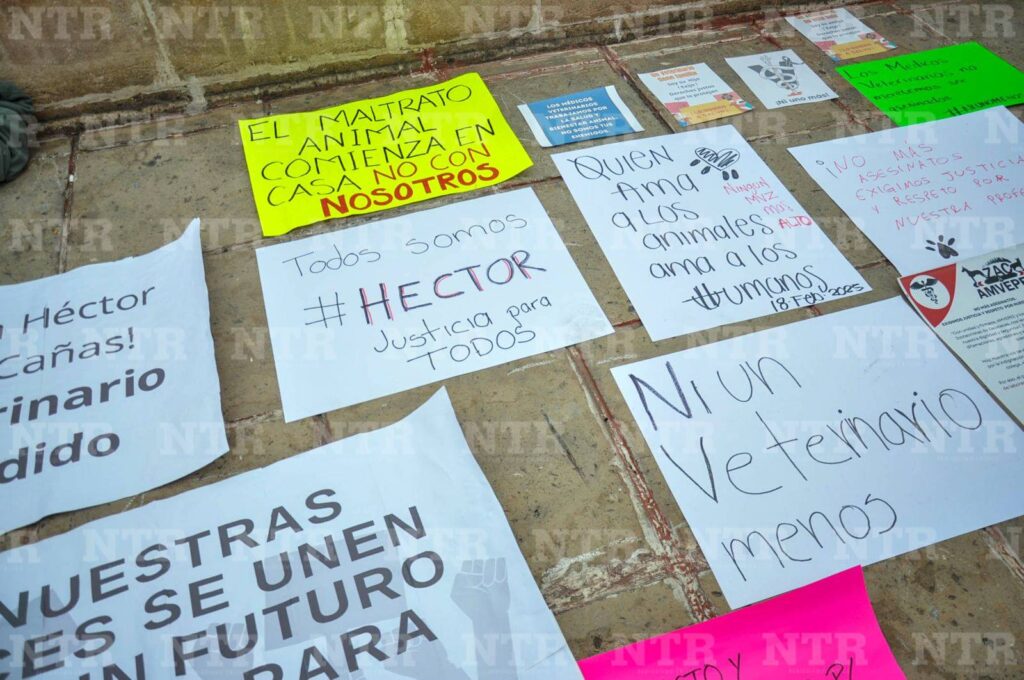 EL MALTRATO
ANIMAL
COMIENZA EN
CASA NO CON
NOSOTROS
LOS MÉDICOS
VETERINARIOS
TRABAJAMOS POR
LA SALUD Y
BIENESTAR ANIMAL
NO SOMOS TUS
ENEMIGOS
¡Ni uno más!
Los Médicos
Veterinarios, no
Quien
Ama
a los
animales
ama a los
Humanos
Ningún
MVZ
más
ABAJO
18-Feb-2025
¡NO MÁS
ASESINATOS
EXIGIMOS JUSTICIA
Y RESPETO POR
NUESTRA
ZAC
AMVEPE
Todos somos
#HECTOR
Justicia para
TODOS
Héctor
Cañas!
rinario
dido
Ni un
Veterinario
menos
NUESTRAS
CES SE UNEN
UN FUTURO
PARA
NTR